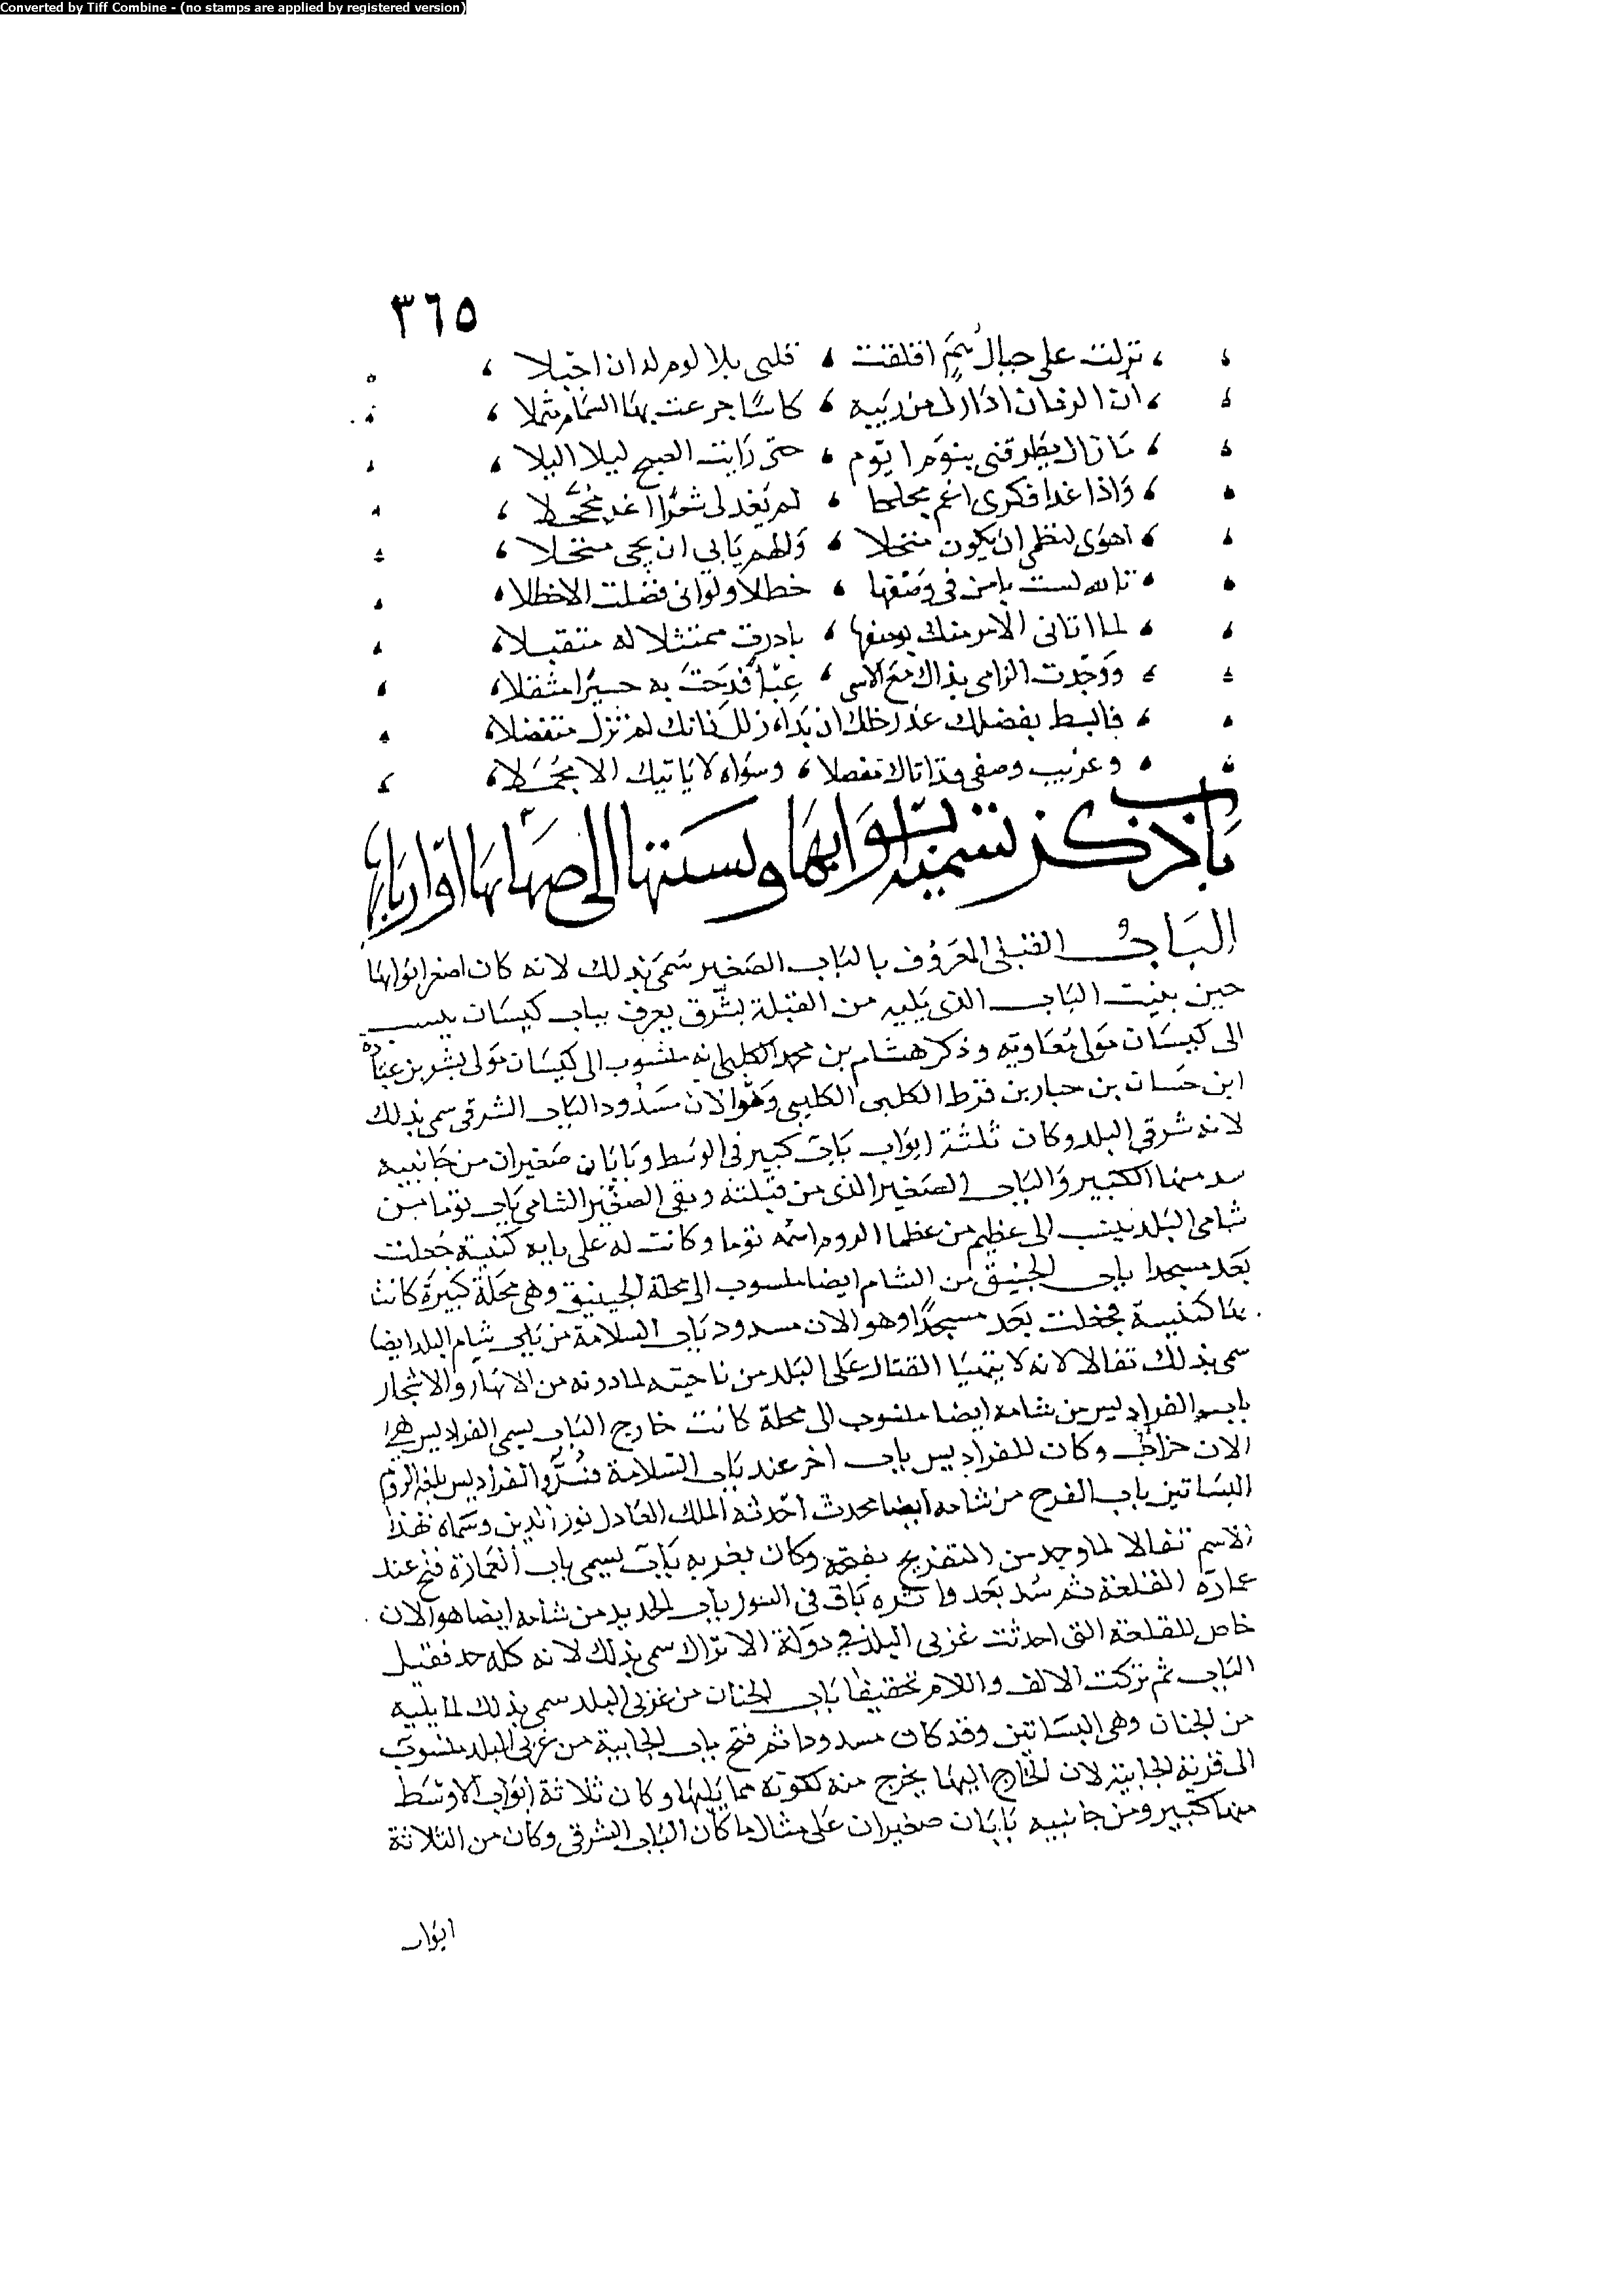 Converted by Tiff Combine - (no stamps are applied by registered version)
٣٦٥
نزلت على جبال هم اقلقت قلبي بلا لوم له ان اخبلا
ان الزمان ادار لى من ريبه كاسا جرعت بها السمام مثملا
ما زال يطرقنى بنوم ايوم حتى رايت الصبح ليلا اليلا
واذا غدا فكرى اغم مجلحا لم يغد لى شعرا اغر محجلا
اهوى لنظمى ان يكون منخلا والهم يابى ان يجى منخلا
تالله لست بامن فى وصفها خطلا ولوانى فضلت الاخطلا
لما اتانى الامر منك بوصفها بادرت ممتثلا له متقبلا
ووجدت الزامى بذاك مع الاسى عبا فدحت به حسيرا مثقلا
فابسط بفضلك عذر خلك ان بدا زلل فانك لم تزل متفضلا
وغريب وصفى قد اتاك مفصلا وسواه لا ياتيك الا مجملا
باب ذكر تسمية ابوابها ونسبتها الى اصحابها او اربابها
الباب القبلى المعروف بالباب الصغير سمى بذلك لانه كان اصغر ابوابها
حين بنيت الباب الذى يليه من القبلة بشرق يعرف بباب كيسان ينسب
الى كيسان مولى معاوية وذكر هشام بن محمد الكلبى انه منسوب الى كيسان مولى بشر بن عبادة
ابن حسان بن حبار بن قرط الكلبى الكلبى وهو الان مسدود الباب الشرقى سمى بذلك
لانه شرقى البلد وكان ثلثة ابواب باب كبير فى الوسط وبابان صغيران من جانبيه
سد منها الكبير والباب الصغير الذى من قبلته وبقى الصغير الشامى باب توما من
شامى البلد ينسب الى عظيم من عظما الروم اسمه توما وكانت له على بابه كنيسة جعلت
بعد مسجدا باب الجنيق من الشام ايضا منسوب الى محلة الجنيق وهى محلة كبيرة كانت
بها كنيسة فجعلت بعد مسجدا وهو الان مسدود باب السلامة من باب شام البلد ايضا
سمى بذلك تفالا لانه لا يتهيا القتال على البلد من ناحيته لما دونه من الانهار والاشجار
باب الفراديس من شامه ايضا منسوب الى محلة كانت خارج الباب يسمى الفراديس هى
الان خراب وكان للفراديس باب اخر عند باب السلامة فسد والفراديس بلغه الروم
البساتين باب الفرج من شامه ايضا محدث احدثه الملك العادل نور الدين وسماه بهذا
الاسم تفالا لما وجد من التفريج بفتحه وكان بغربه باب يسمى باب العمارة فتح عند
عمارة القلعة ثم سد بعد واثره باق فى السور باب الحديد من شامه ايضا هو الان
خاص للقلعة التى احدثت غربى البلد فى دولة الاتراك سمى بذلك لانه كله حد فقيل
الباب ثم تركت الالف واللام تخفيفا باب الجنان من غربى البلد سمى بذلك لما يليه
من الجنان وهى البساتين وقد كان مسدودا ثم فتح باب الجابية من غربى البلد منسوب
الى قرية الجابية لان الخارج اليها يخرج منه لكونه مما يليها وكان ثلاثة ابواب الاوسط
منها كبير ومن جانبيه بابان صغيران على مثال ما كان الباب الشرقى وكان من الثلاثة
ابواب